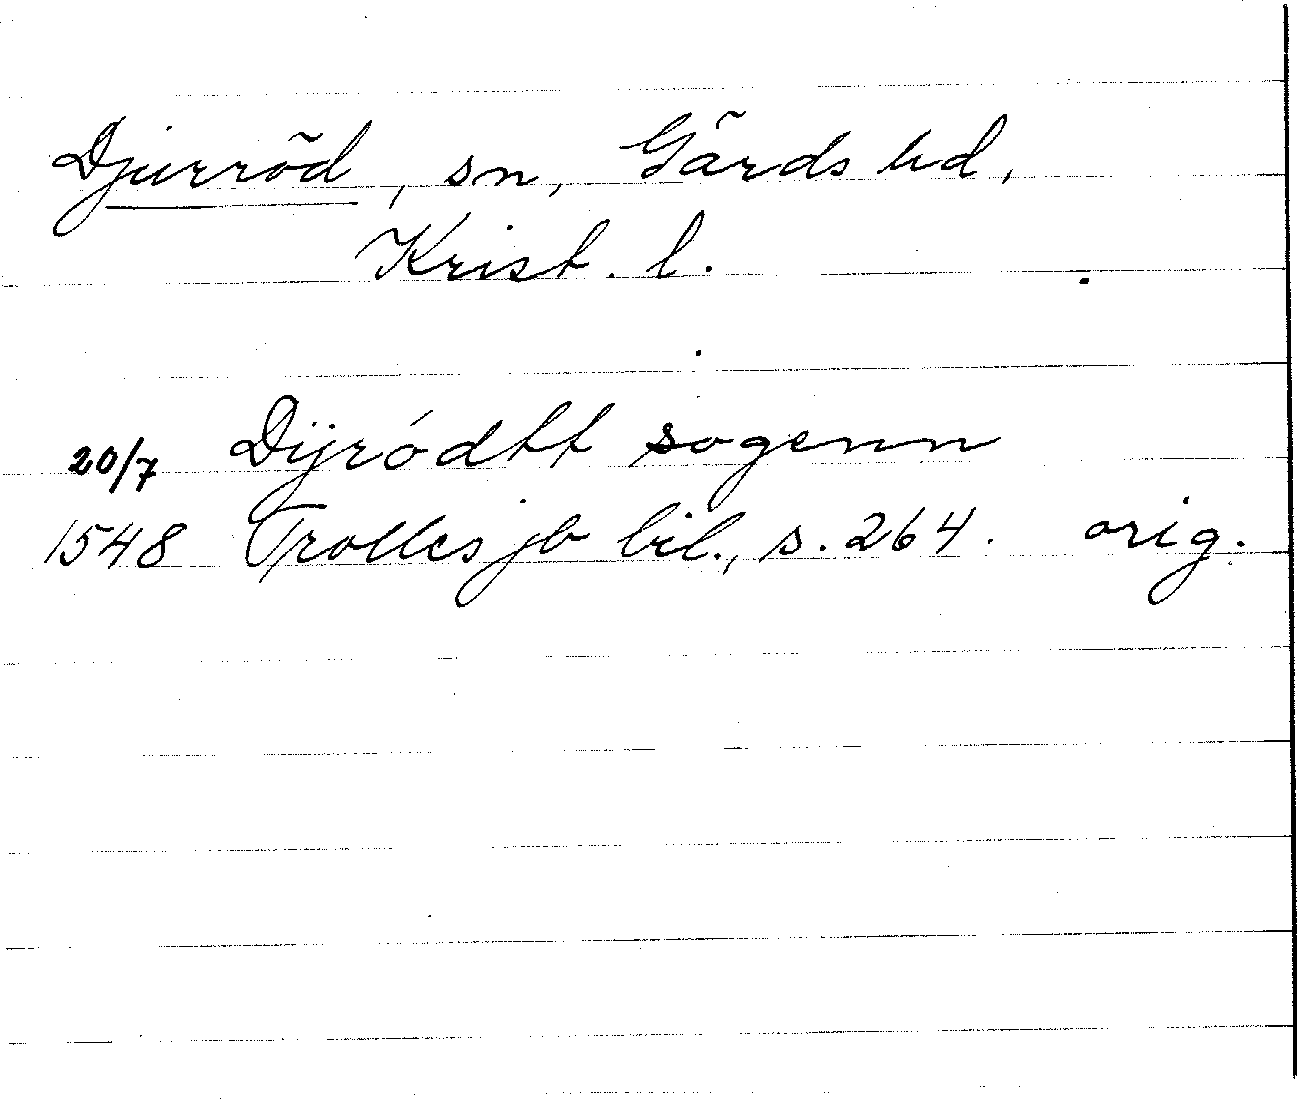 Djurröd, sn, Gärds hd,
Krist. l.
20/7 Dijródtt sogenn
1548 Trolles jb bil., s. 264. orig.